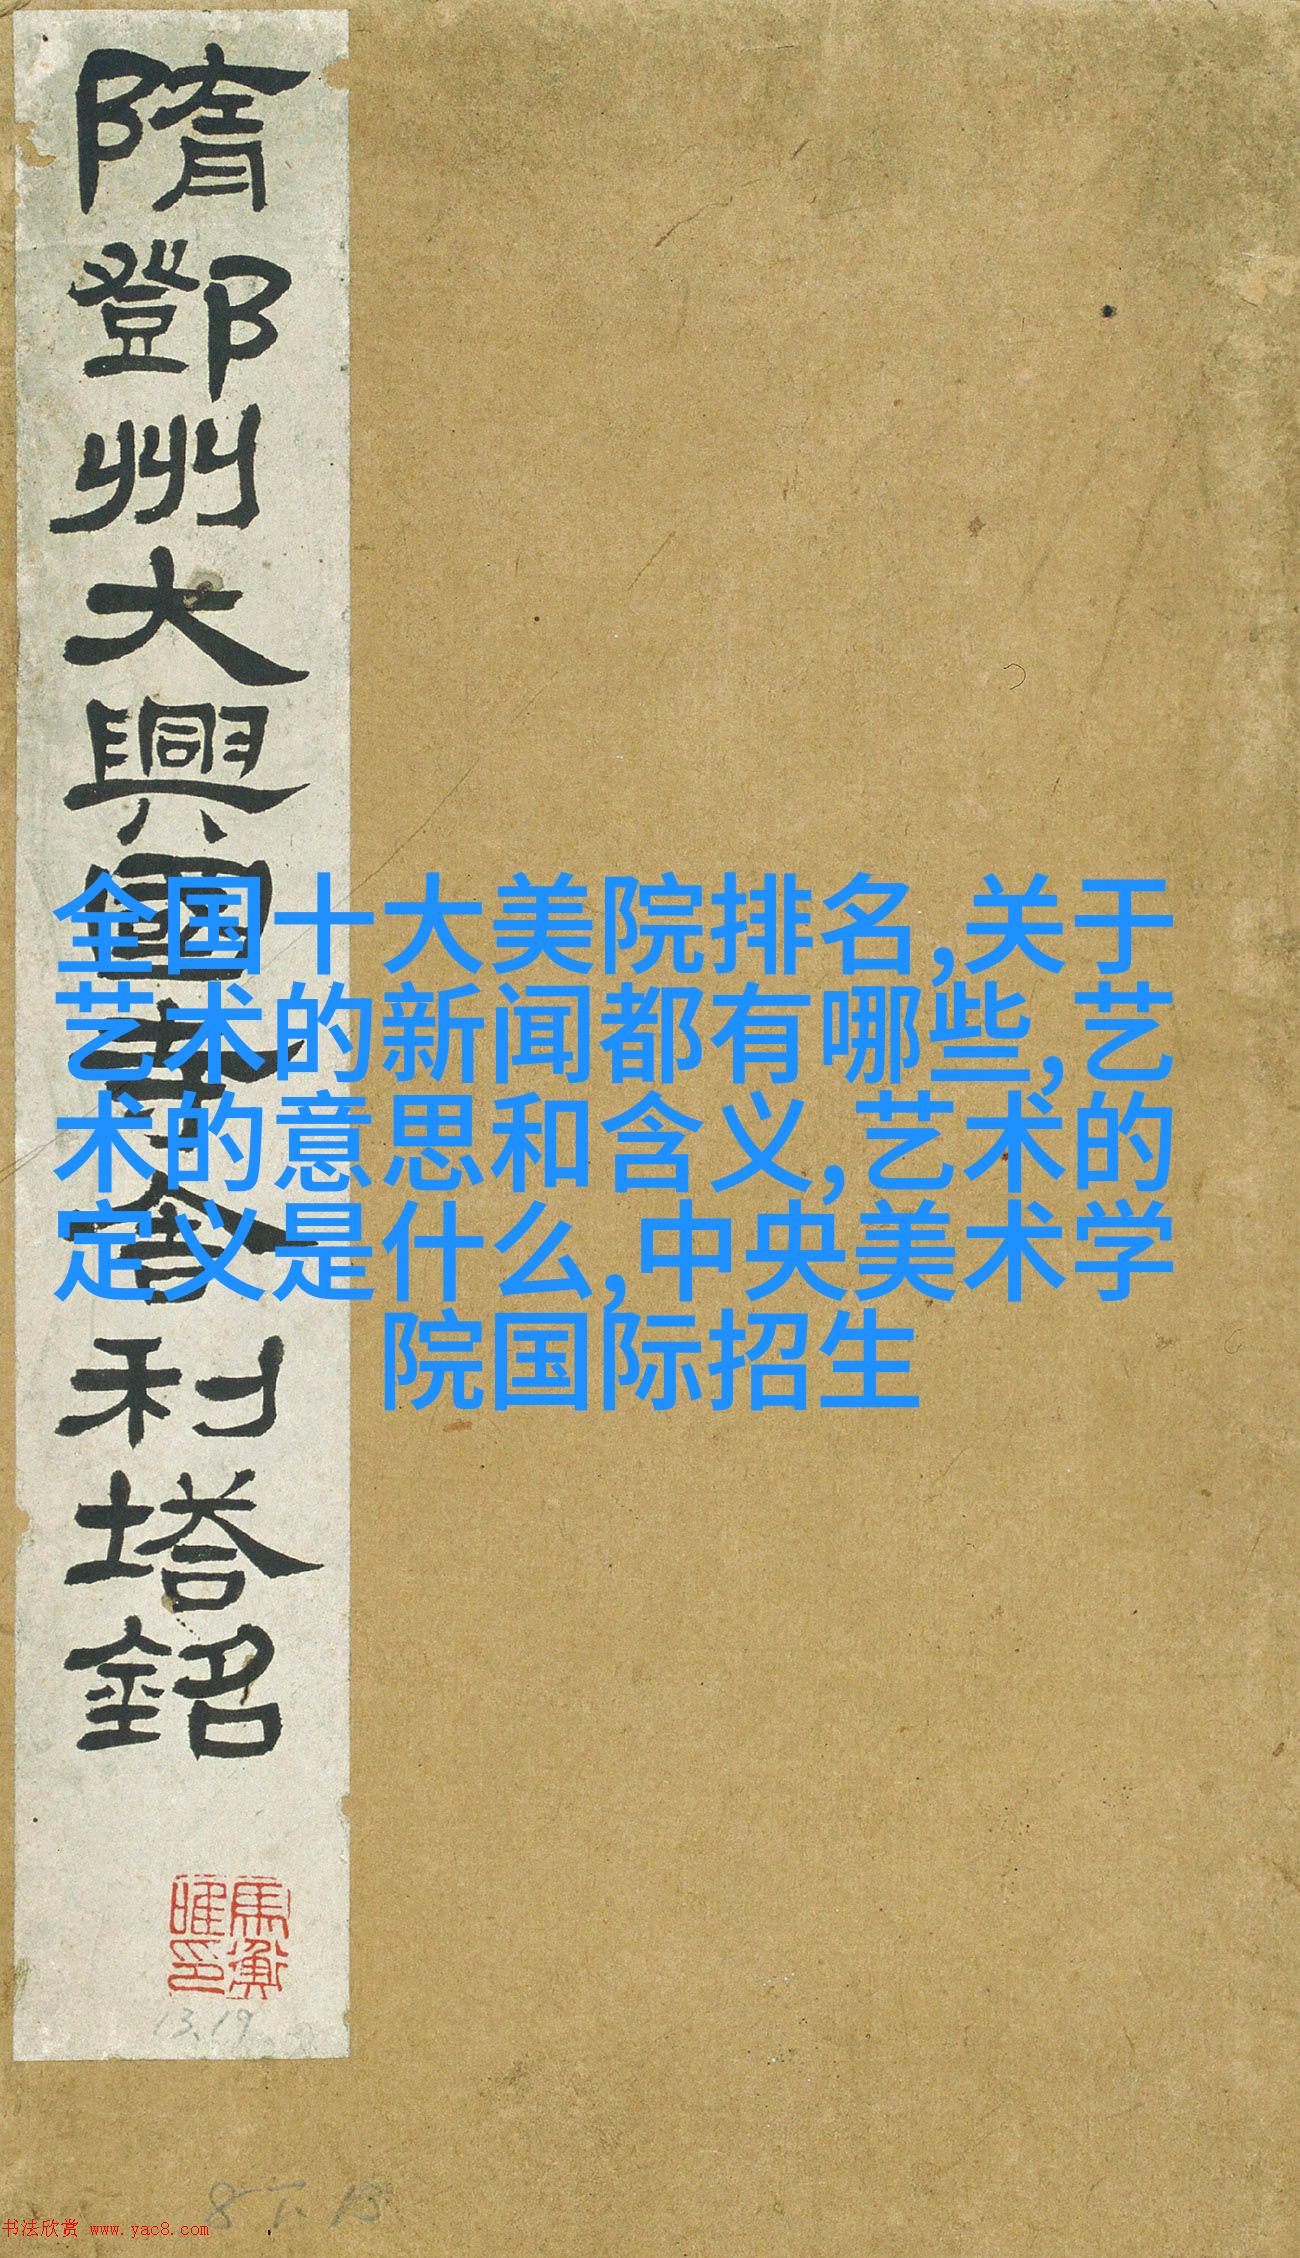 隋鄧州大興國寺舍利塔銘
全国十大美院排名,关于
艺术的新闻都有哪些,艺
术的意思和含义,艺术的
定义是什么,中央美术学
院国际招生
馬衡
睢印
13.19
8下13
书法欣赏 www.yac8.com